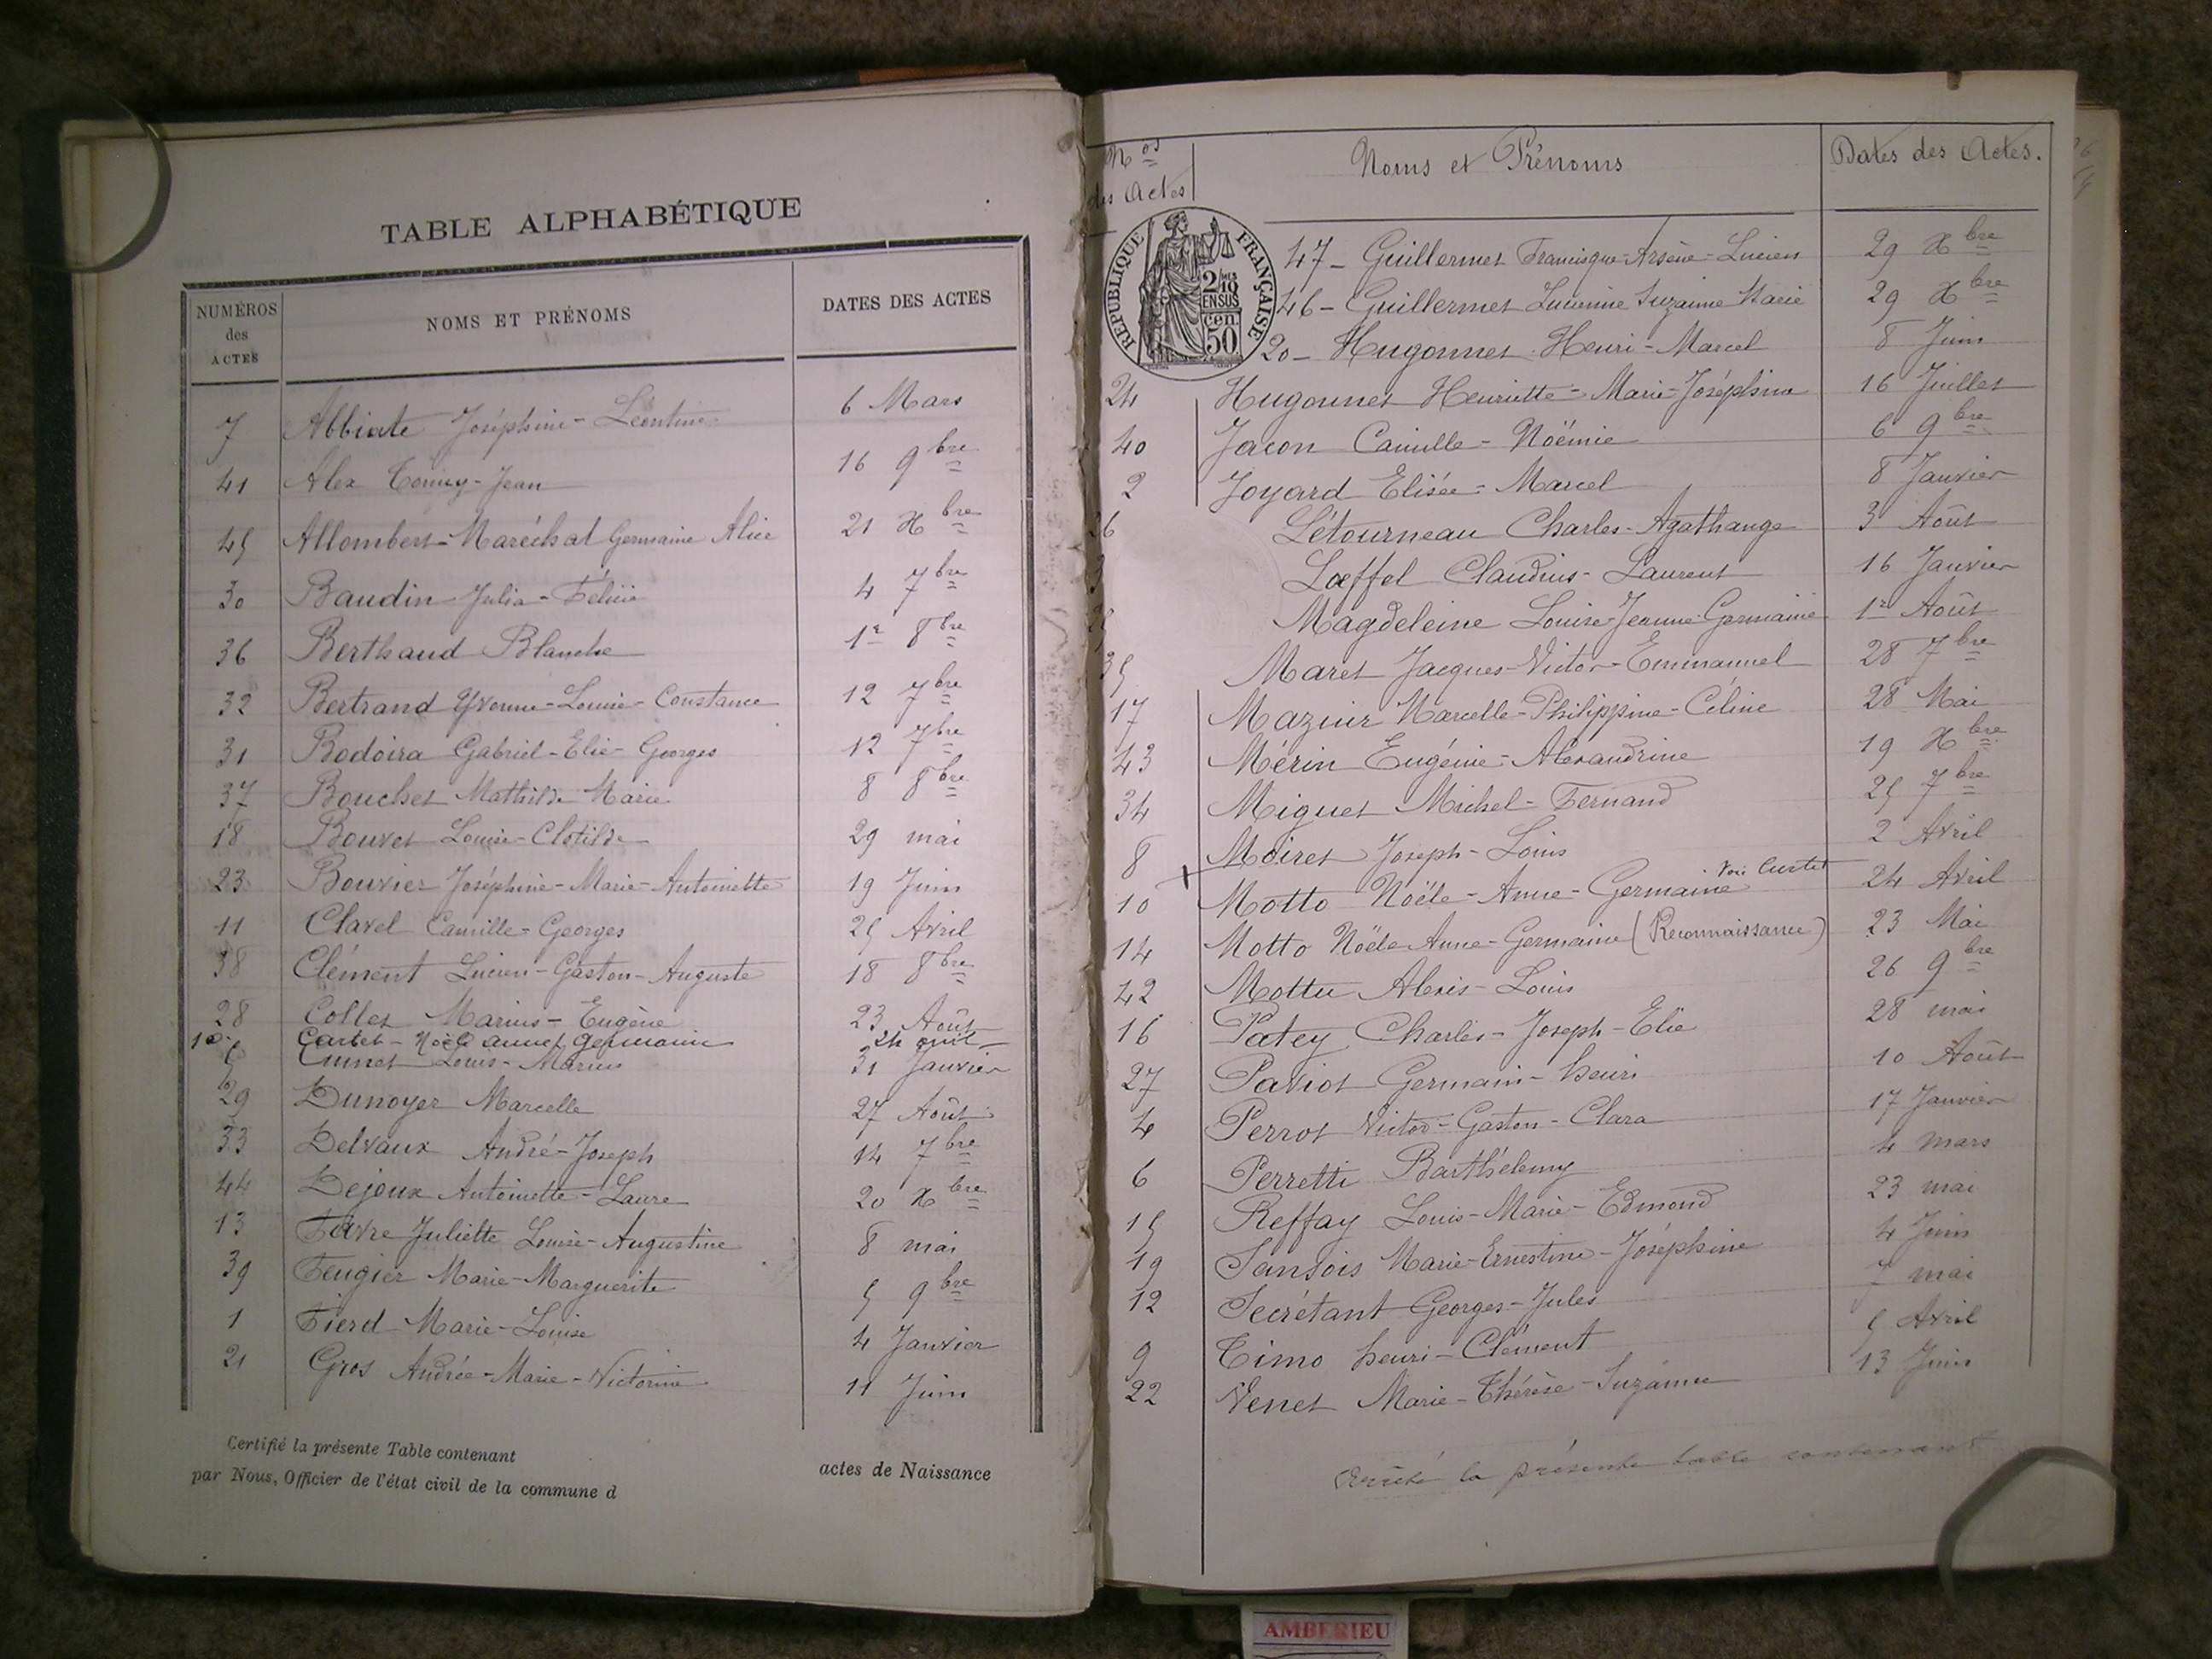 TABLE ALPHABÉTIQUE
NUMÉROS des ACTES NOMS ET PRÉNOMS DATES DES ACTES
7 Abbiate Joséphine-Léontine 6 Mars
41 Alex Tonny-Jean 16 9bre
45 Allombert-Maréchal Germaine Alice 21 Xbre
30 Baudin Julia-Félicie 4 7bre
36 Berthaud Blanche 1r 8bre
32 Bertrand Yvonne-Louise-Constance 12 7bre
31 Bodoira Gabriel-Elie-Georges 12 7bre
37 Bouchet Mathilde Marie 8 8bre
18 Bouvet Louise-Clotilde 29 mai
23 Bouvier Joséphine-Marie-Antoinette 19 Juin
11 Clavel Camille-Georges 25 Avril
38 Clément Lucien-Gaston-Auguste 18 8bre
28 Collet Marius-Eugène 23 Août
10 Curtet - Noële Germaine 24
5 Louis-Marius 31 Janvier
29 Dunoyer Marcelle 27 Août
33 Delvaux André-Joseph 14 7bre
44 Dejoux Antoinette-Laure 20 Xbre
13 Favre Juliette Louise-Augustine 8 mai
39 Feugier Marie-Marguerite 5 9bre
1 Fierd Marie-Louise 4 Janvier
21 Gros Andrée-Marie-Victorine 11 Juin
Certifié la présente Table contenant actes de Naissance
par Nous, Officier de l'état civil de la commune d
Nos des Actes Noms et Prénoms Dates des Actes.
RÉPUBLIQUE FRANÇAISE
2/10 MES
EN SUS
50 cen.
47 - Guillermet Francisque-Arsène-Lucien 29 Xbre
46 - Guillermet Lucienne Suzanne Marie 29 Xbre
20 - Hugonnet Henri-Marcel 8 Juin
24 Hugonnet Henriette-Marie-Joséphine 16 Juillet
40 Jacon Camille-Noëmie 6 9bre
2 Joyard Elisée-Marcel 8 Janvier
26 Létourneau Charles-Agathange 3 Août
3 Lœffel Claudius-Laurent 16 Janvier
Magdeleine Louise-Jeanne-Germaine 1r Août
35 Maret Jacques-Victor-Emmanuel 28 7bre
17 Mazuir Marcelle-Philippine-Céline 28 Mai
43 Mérin Eugénie-Alexandrine 19 Xbre
34 Miguet Michel-Fernand 25 7bre
8 Moiret Joseph-Louis 2 Avril
10 Motto Noële-Anne-Germaine Voir Curtet 24 Avril
14 Motto Noële Anne-Germaine (Reconnaissance) 23 Mai
42 Mottu Alexis-Louis 26 9bre
16 Patey Charles-Joseph-Elie 28 mai
27 Paviot Germain-henri 10 Août
4 Perrot Victor-Gaston-Clara 17 Janvier
6 Perretti Barthélemy 4 mars
15 Reffay Louis-Marie-Edmond 23 mai
19 Sansois Marie-Ernestine-Joséphine 4 Juin
12 Secrétant Georges-Jules 7 mai
9 Timo henri-Clément 5 Avril
22 Venet Marie-Thérèse-Suzanne 13 Juin
Arrêté la présente table contenant
AMBERIEU